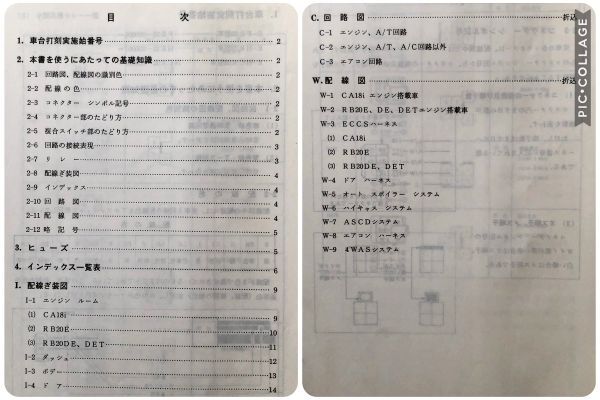 目 次
1. 車台打刻実施始番号 2
2. 本書を使うにあたっての基礎知識 2
2-1 回路図、配線図の識別色 2
2-2 配線の色 2
2-3 コネクター シンボル記号 2
2-4 コネクター部のたどり方 2
2-5 複合スイッチ部のたどり方 2
2-6 回路の接続表現 3
2-7 リレー 3
2-8 配線ぎ装図 4
2-9 インデックス 4
2-10 回路図 4
2-11 配線図 4
2-12 略記号 5
3. ヒューズ 5
4. インデックス一覧表 6
I. 配線ぎ装図 9
I-1 エンジン ルーム
(1) CA18i 9
(2) RB20E 10
(3) RB20DE、DET 11
I-2 ダッシュ 12
I-3 ボデー 13
I-4 ドア 14
C. 回路図 折込
C-1 エンジン、A/T回路
C-2 エンジン、A/T、A/C回路以外
C-3 エアコン回路
W. 配線図 折込
W-1 CA18iエンジン搭載車
W-2 RB20E、DE、DETエンジン搭載車
W-3 ECCSハーネス
(1) CA18i
(2) RB20E
(3) RB20DE、DET
W-4 ドア ハーネス
W-5 オート スポイラー システム
W-6 ハイキャス システム
W-7 ASCDシステム
W-8 エアコン ハーネス
W-9 4WASシステム
PIC•COLLAGE